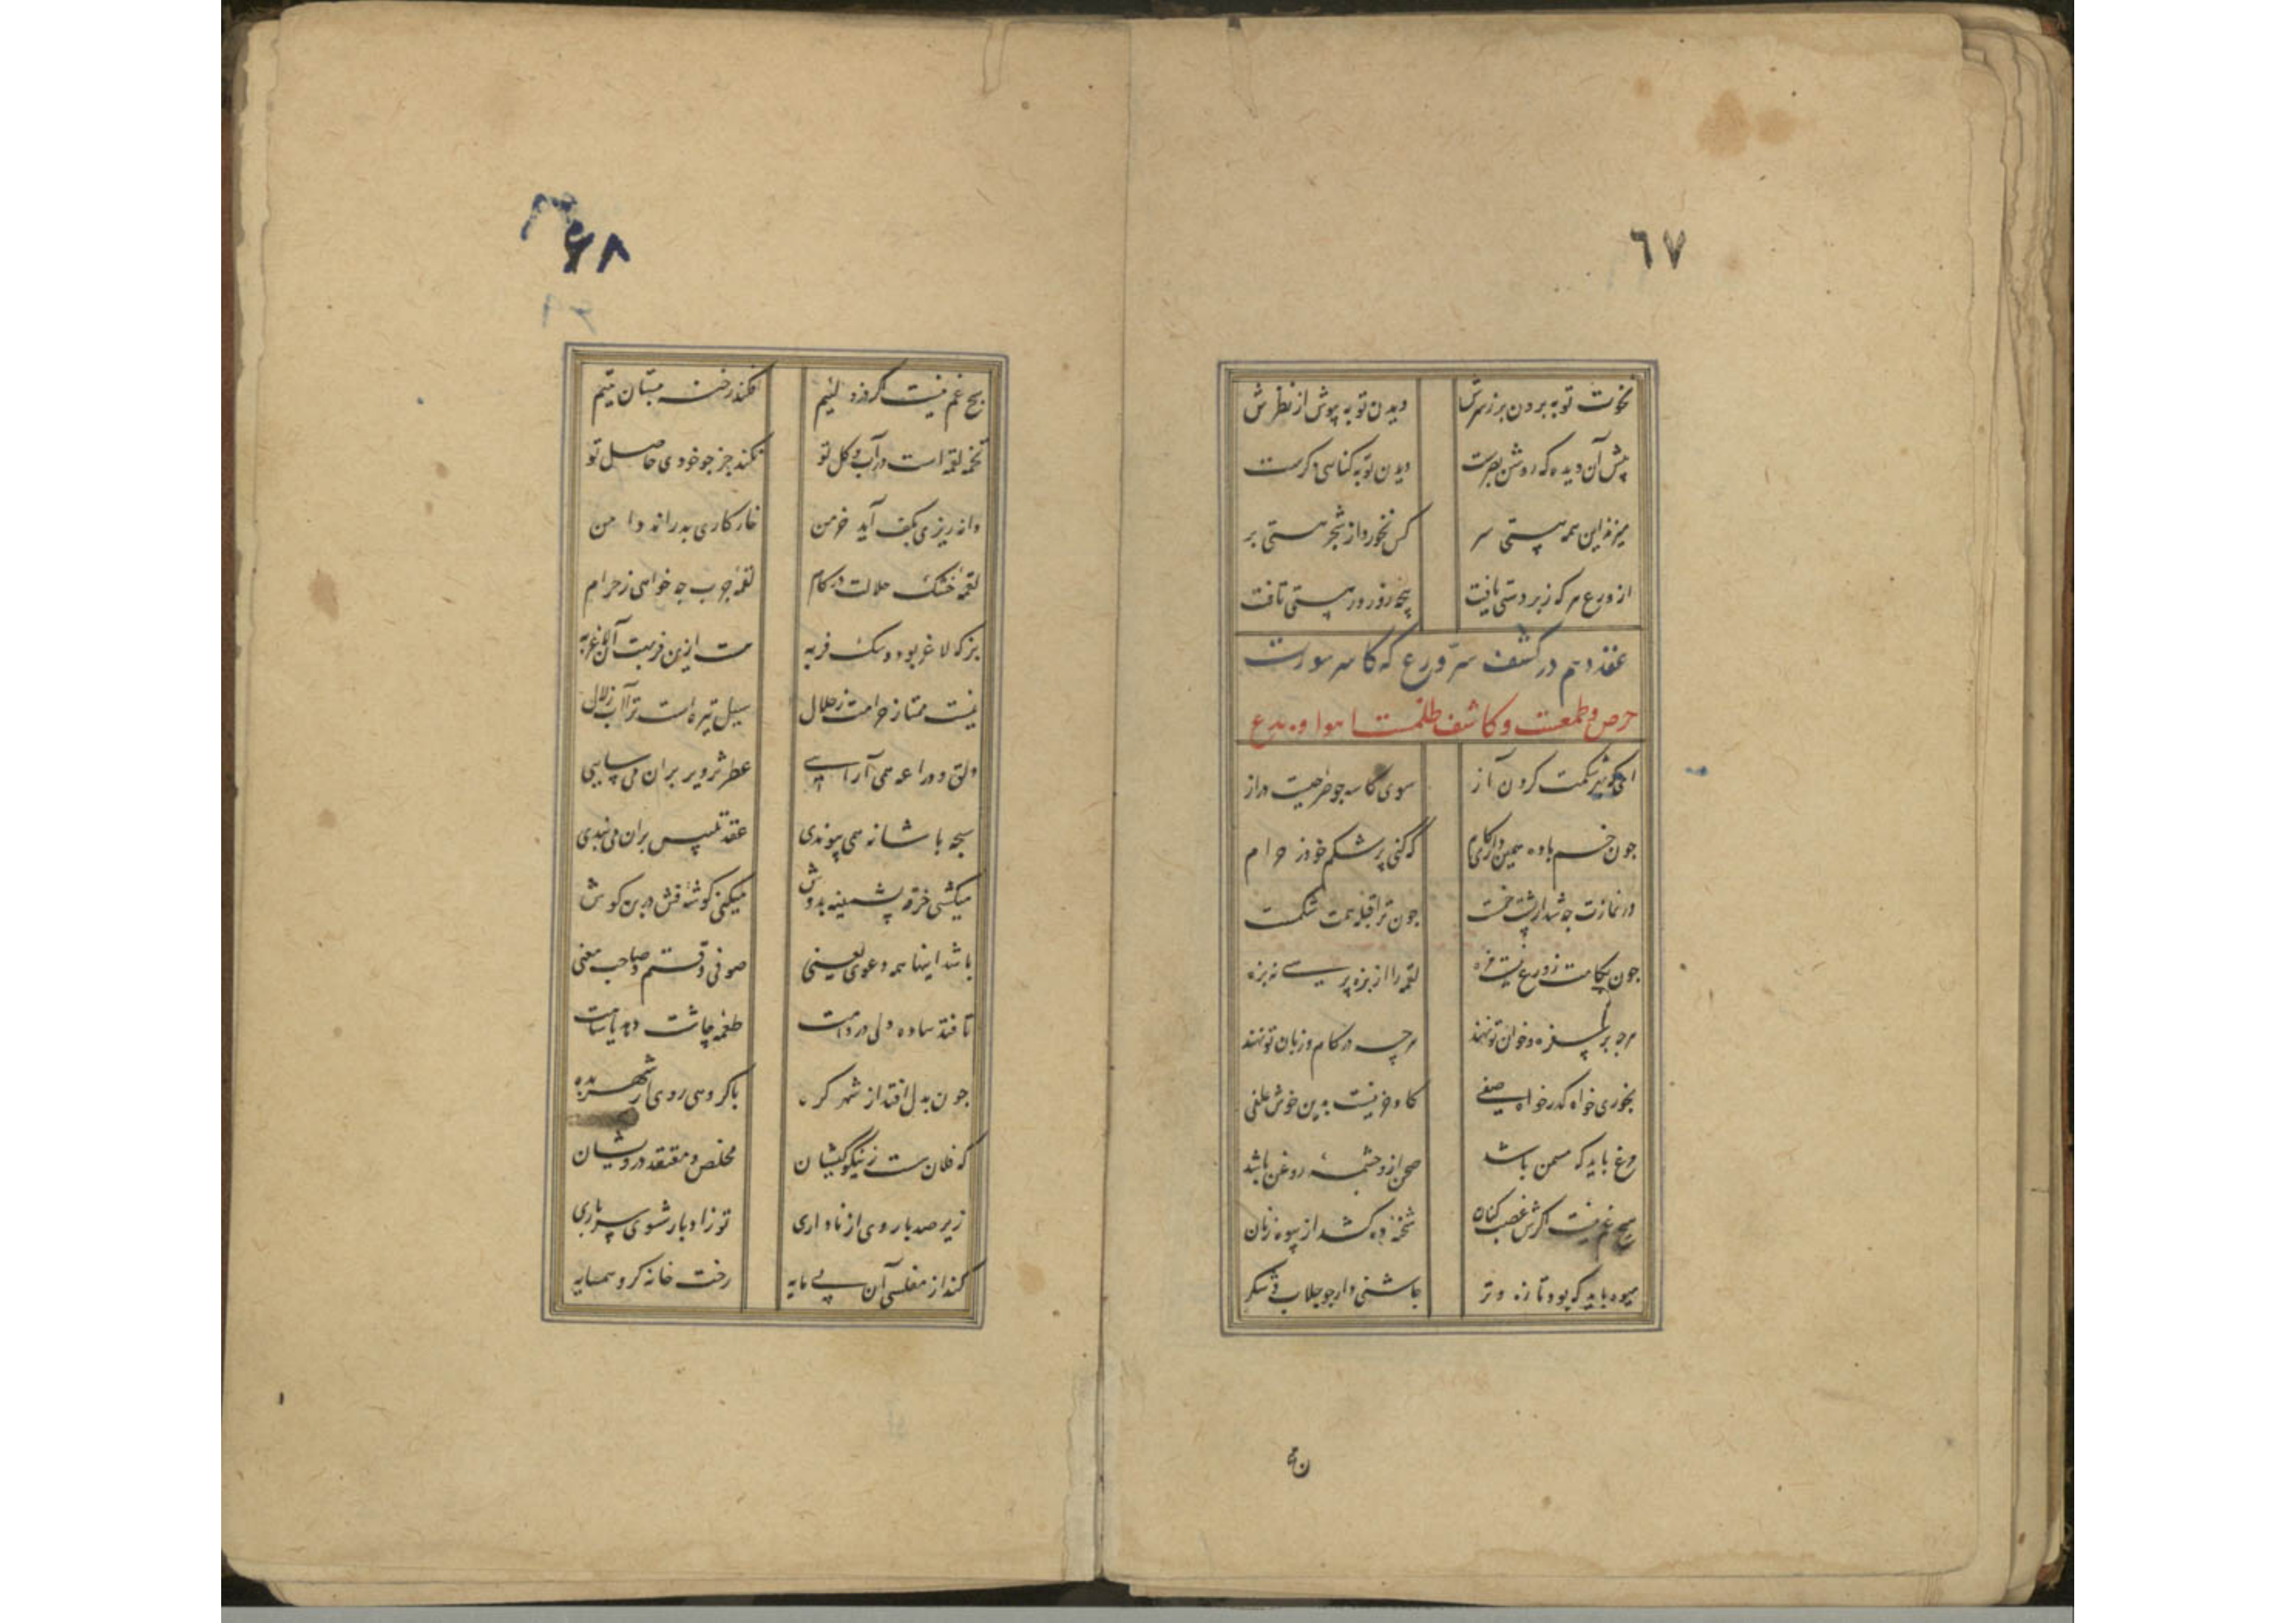 ٦٧
نخوت توبه بردن بر ز سرش دیدن توبه بپوش از نظرش
پیش آن دیده که روشن بصرست دیدن توبه کناهی دکرست
میزند این همه پستی سر کس نخورد از شجر هستی بر
از ورع هر که زبردستی یافت پنجه زور ور هستی تافت
عقد دهم در کشف سر ورع که کاسر سورت
حرص و طمعست و کاشف ظلمت اهوا و بدع
ای شکمت کردن آز سوی کاسه جو صراحیت دراز
جون خم باده همین داری کام که کنی پر شکم خود ز حرام
در نمازت جه شد ار پشت خمت جون ترا قبله همت شکمت
جون بکامت ز ورع نیست مزه لقمه را از بزه پرسی نه بزه
هرجه بر سفره و خوان تو نهند هرچه در کام و زبان تو نهند
بخوری خواه کدر خواه صفی کاو و خر نیست بدین خوش علفی
مرغ باید که مسمن باشد صحن ازو جشمهٔ روغن باشد
هیچ غم نیست اکرش غصب کنان شحنهٔ ده کشد از بیوه زنان
میوه باید که بود تازه و تر جاشنی دار جو جلاب و شکر
٦٨
هیچ غم نیست اکر دزد لئیم فکند رخنه ببستان یتیم
تخم لقمه است در آب و کل تو نکند جز جو خودی حاصل تو
دانه ریزی بکف آید خرمن خار کاری بدراند دامن
لقمهٔ خشک حلالت در کام لقمهٔ جرب جه خواهی ز حرام
بز که لاغر بود و سک فربه هست ازین فربهت آن لاغر به
نیست ممتاز حرامت ز حلال سیل تیره است ترا آب زلال
دلق و دراعه همی آرایی عطر تزویر بران می سایی
سبحه با شانه همی پیوندی عقد تلبیس بران می بندی
میکشی خرقه پشمینه بدوش میکنی کوشهٔ فش در بن کوش
باشد اینها همه دعوی یعنی صوفی وقتم و صاحب معنی
تا فتد ساده دلی در دامت طعمه چاشت دهد یا شامت
جون بدل افتد از شهر کره با کروهی روی از شهر بده
که فلان هست ز نیکو کیشان مخلص و معتقد درویشان
زیر صد بار وی از ناداری تو ز ادبار شوی سرباری
کند از مفلسی آن بی مایه رخت خانه کرو همسایه